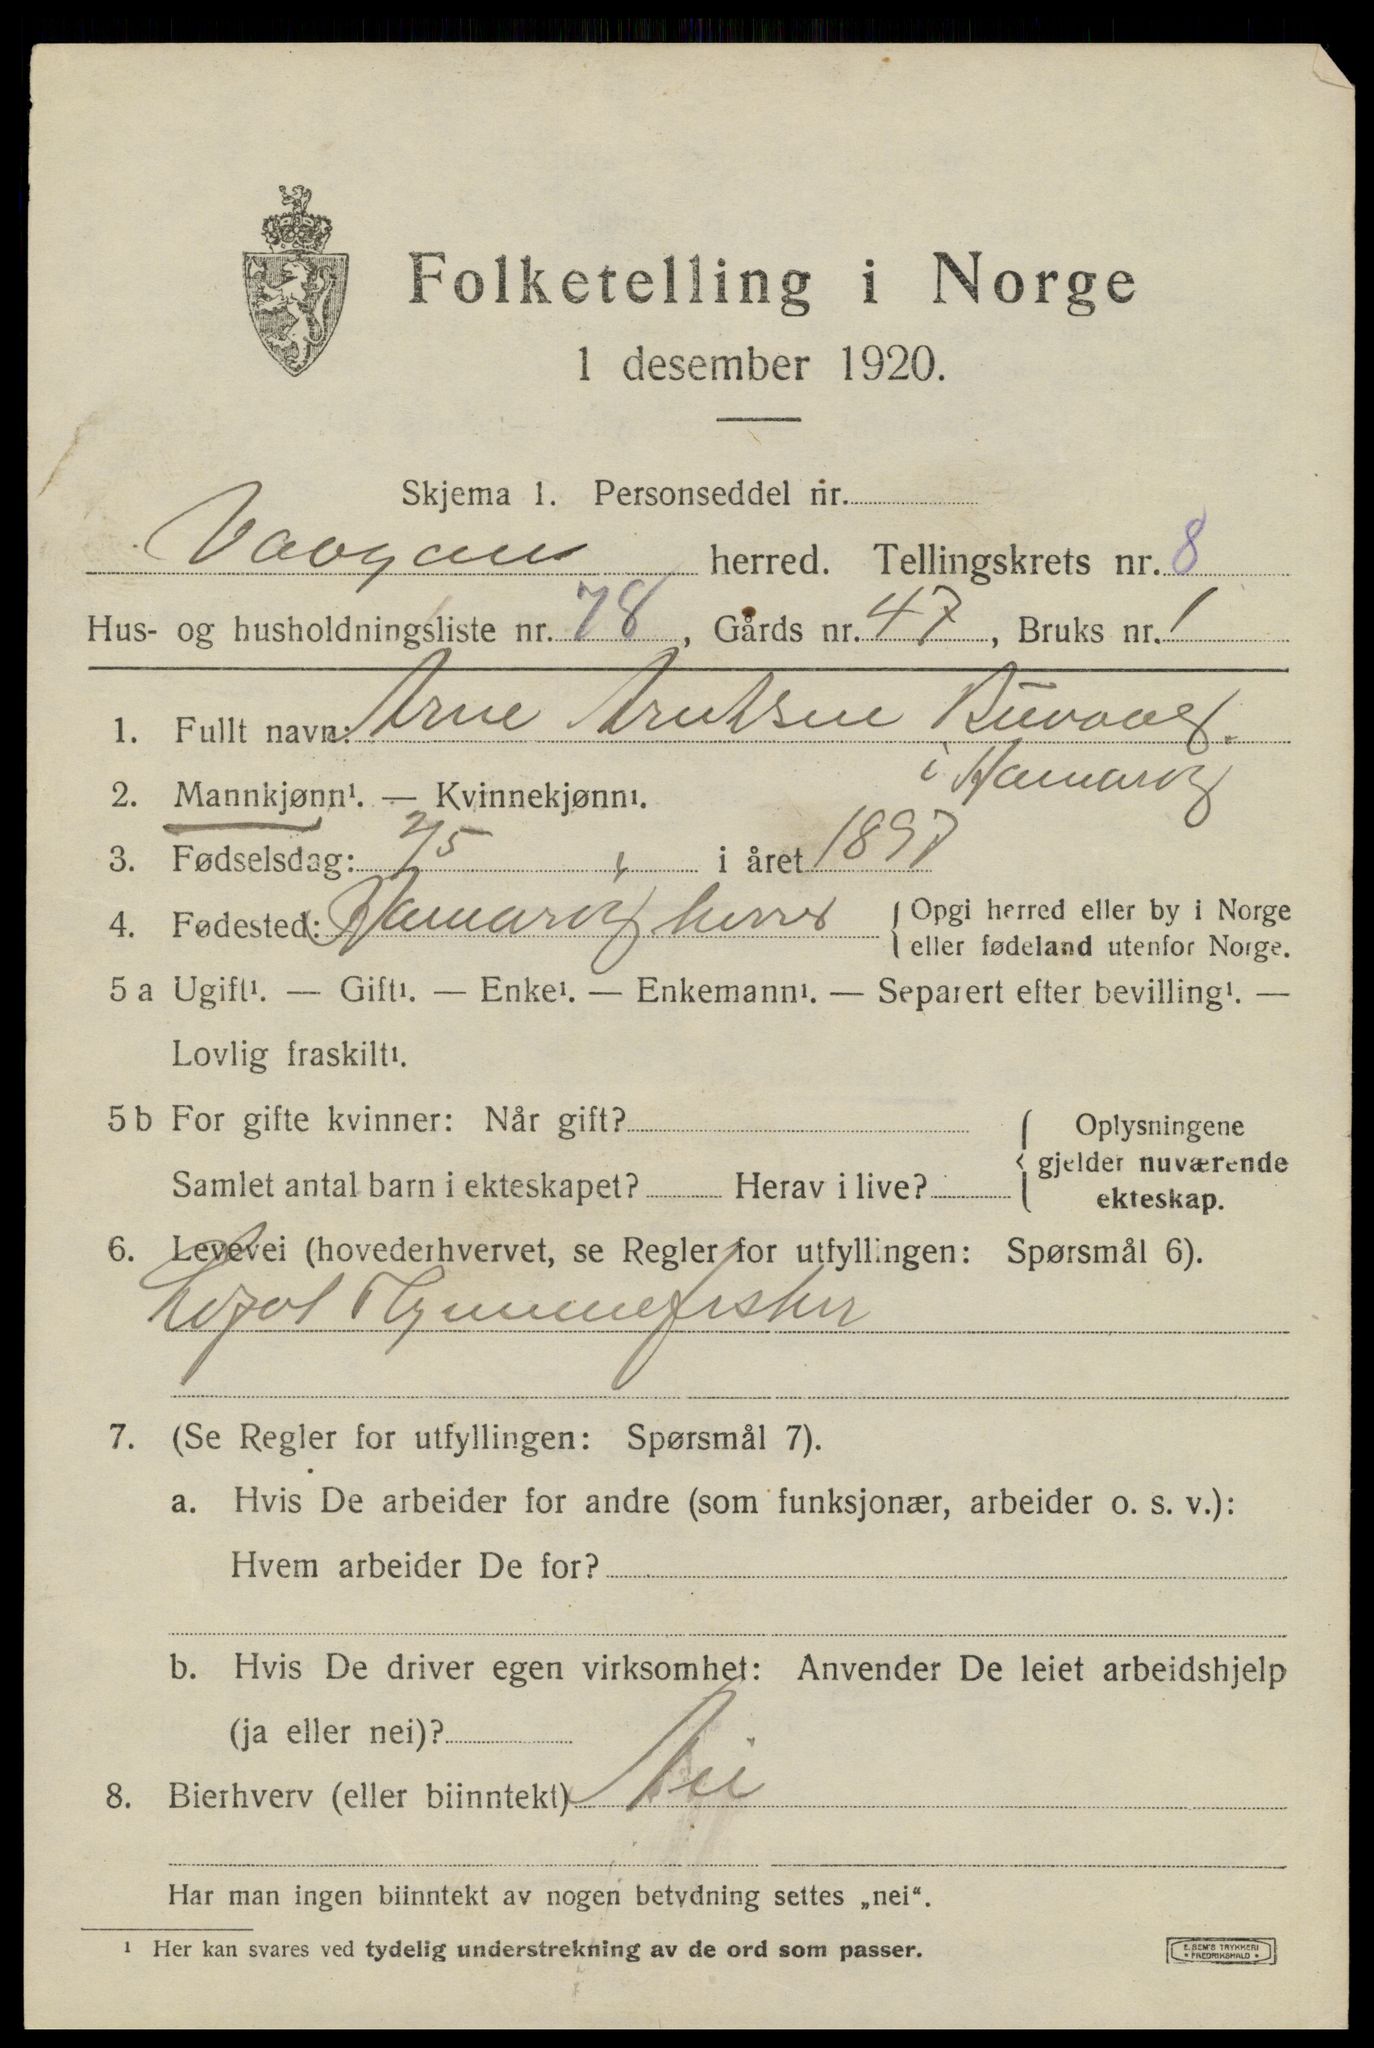 Folketelling i Norge
1 desember 1920.
Skjema 1. Personseddel nr.
Vaagan herred. Tellingskrets nr. 8
Hus- og husholdningsliste nr. 78, Gårds nr. 47, Bruks nr. 1
1. Fullt navn: Arne Arntsen Buvaag.
i Hamarøy
2. Mannkjønn¹. — Kvinnekjønn¹.
3. Fødselsdag: 2/5 i året 1897
4. Fødested: Hamarøy herred { Opgi herred eller by i Norge
eller fødeland utenfor Norge.
5 a Ugift¹. — Gift¹. — Enke¹. — Enkemann¹. — Separert efter bevilling¹. —
Lovlig fraskilt¹.
5 b For gifte kvinner: Når gift? { Oplysningene
gjelder nuværende
Samlet antal barn i ekteskapet? Herav i live? ekteskap.
6. Levevei (hovederhvervet, se Regler for utfyllingen: Spørsmål 6).
7. (Se Regler for utfyllingen: Spørsmål 7).
a. Hvis De arbeider for andre (som funksjonær, arbeider o. s. v.):
Hvem arbeider De for?
b. Hvis De driver egen virksomhet: Anvender De leiet arbeidshjelp
(ja eller nei)?
8. Bierhverv (eller biinntekt) Nei
Har man ingen biinntekt av nogen betydning settes „nei“.
¹ Her kan svares ved tydelig understrekning av de ord som passer.
E. SEM'S TRYKKERI
* FREDRIKSHALD *